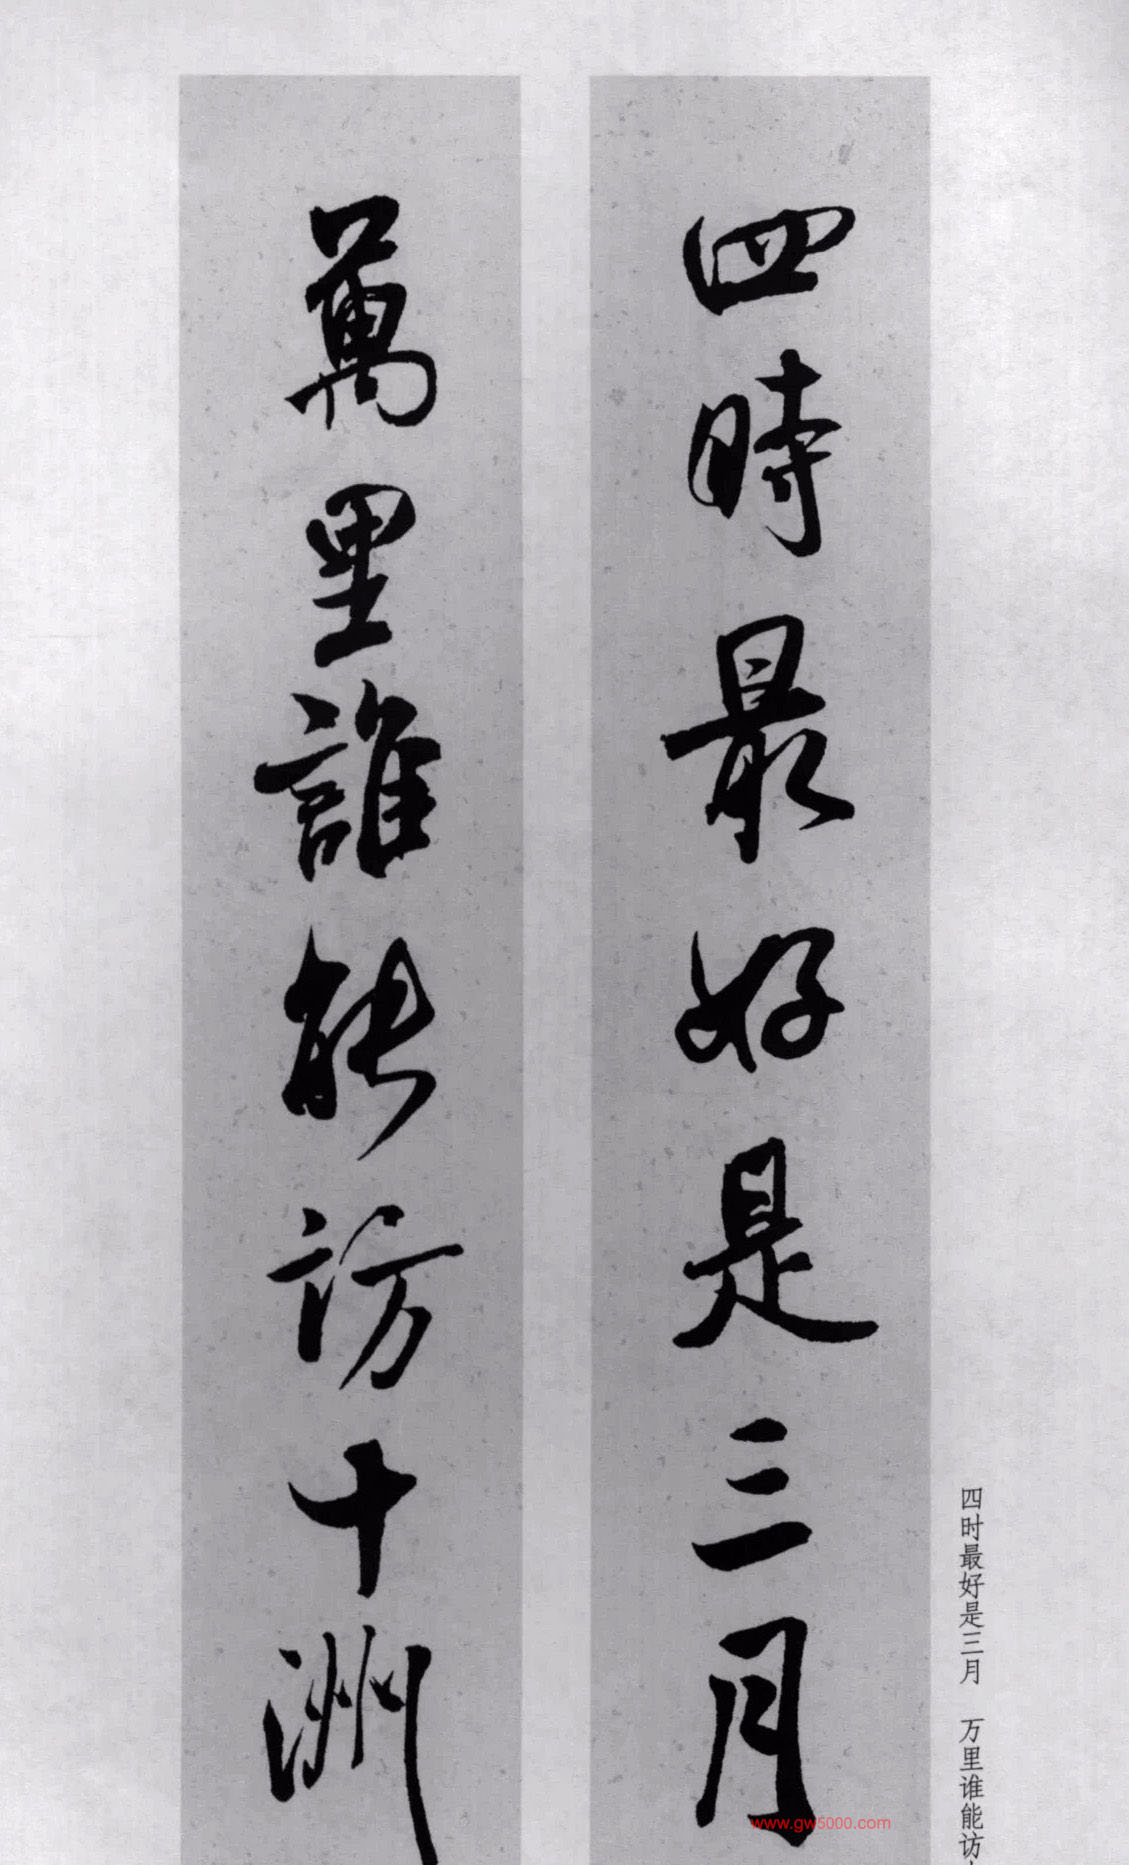 四時最好是三月
萬里誰能訪十洲
四时最好是三月 万里谁能访
www.gw5000.com